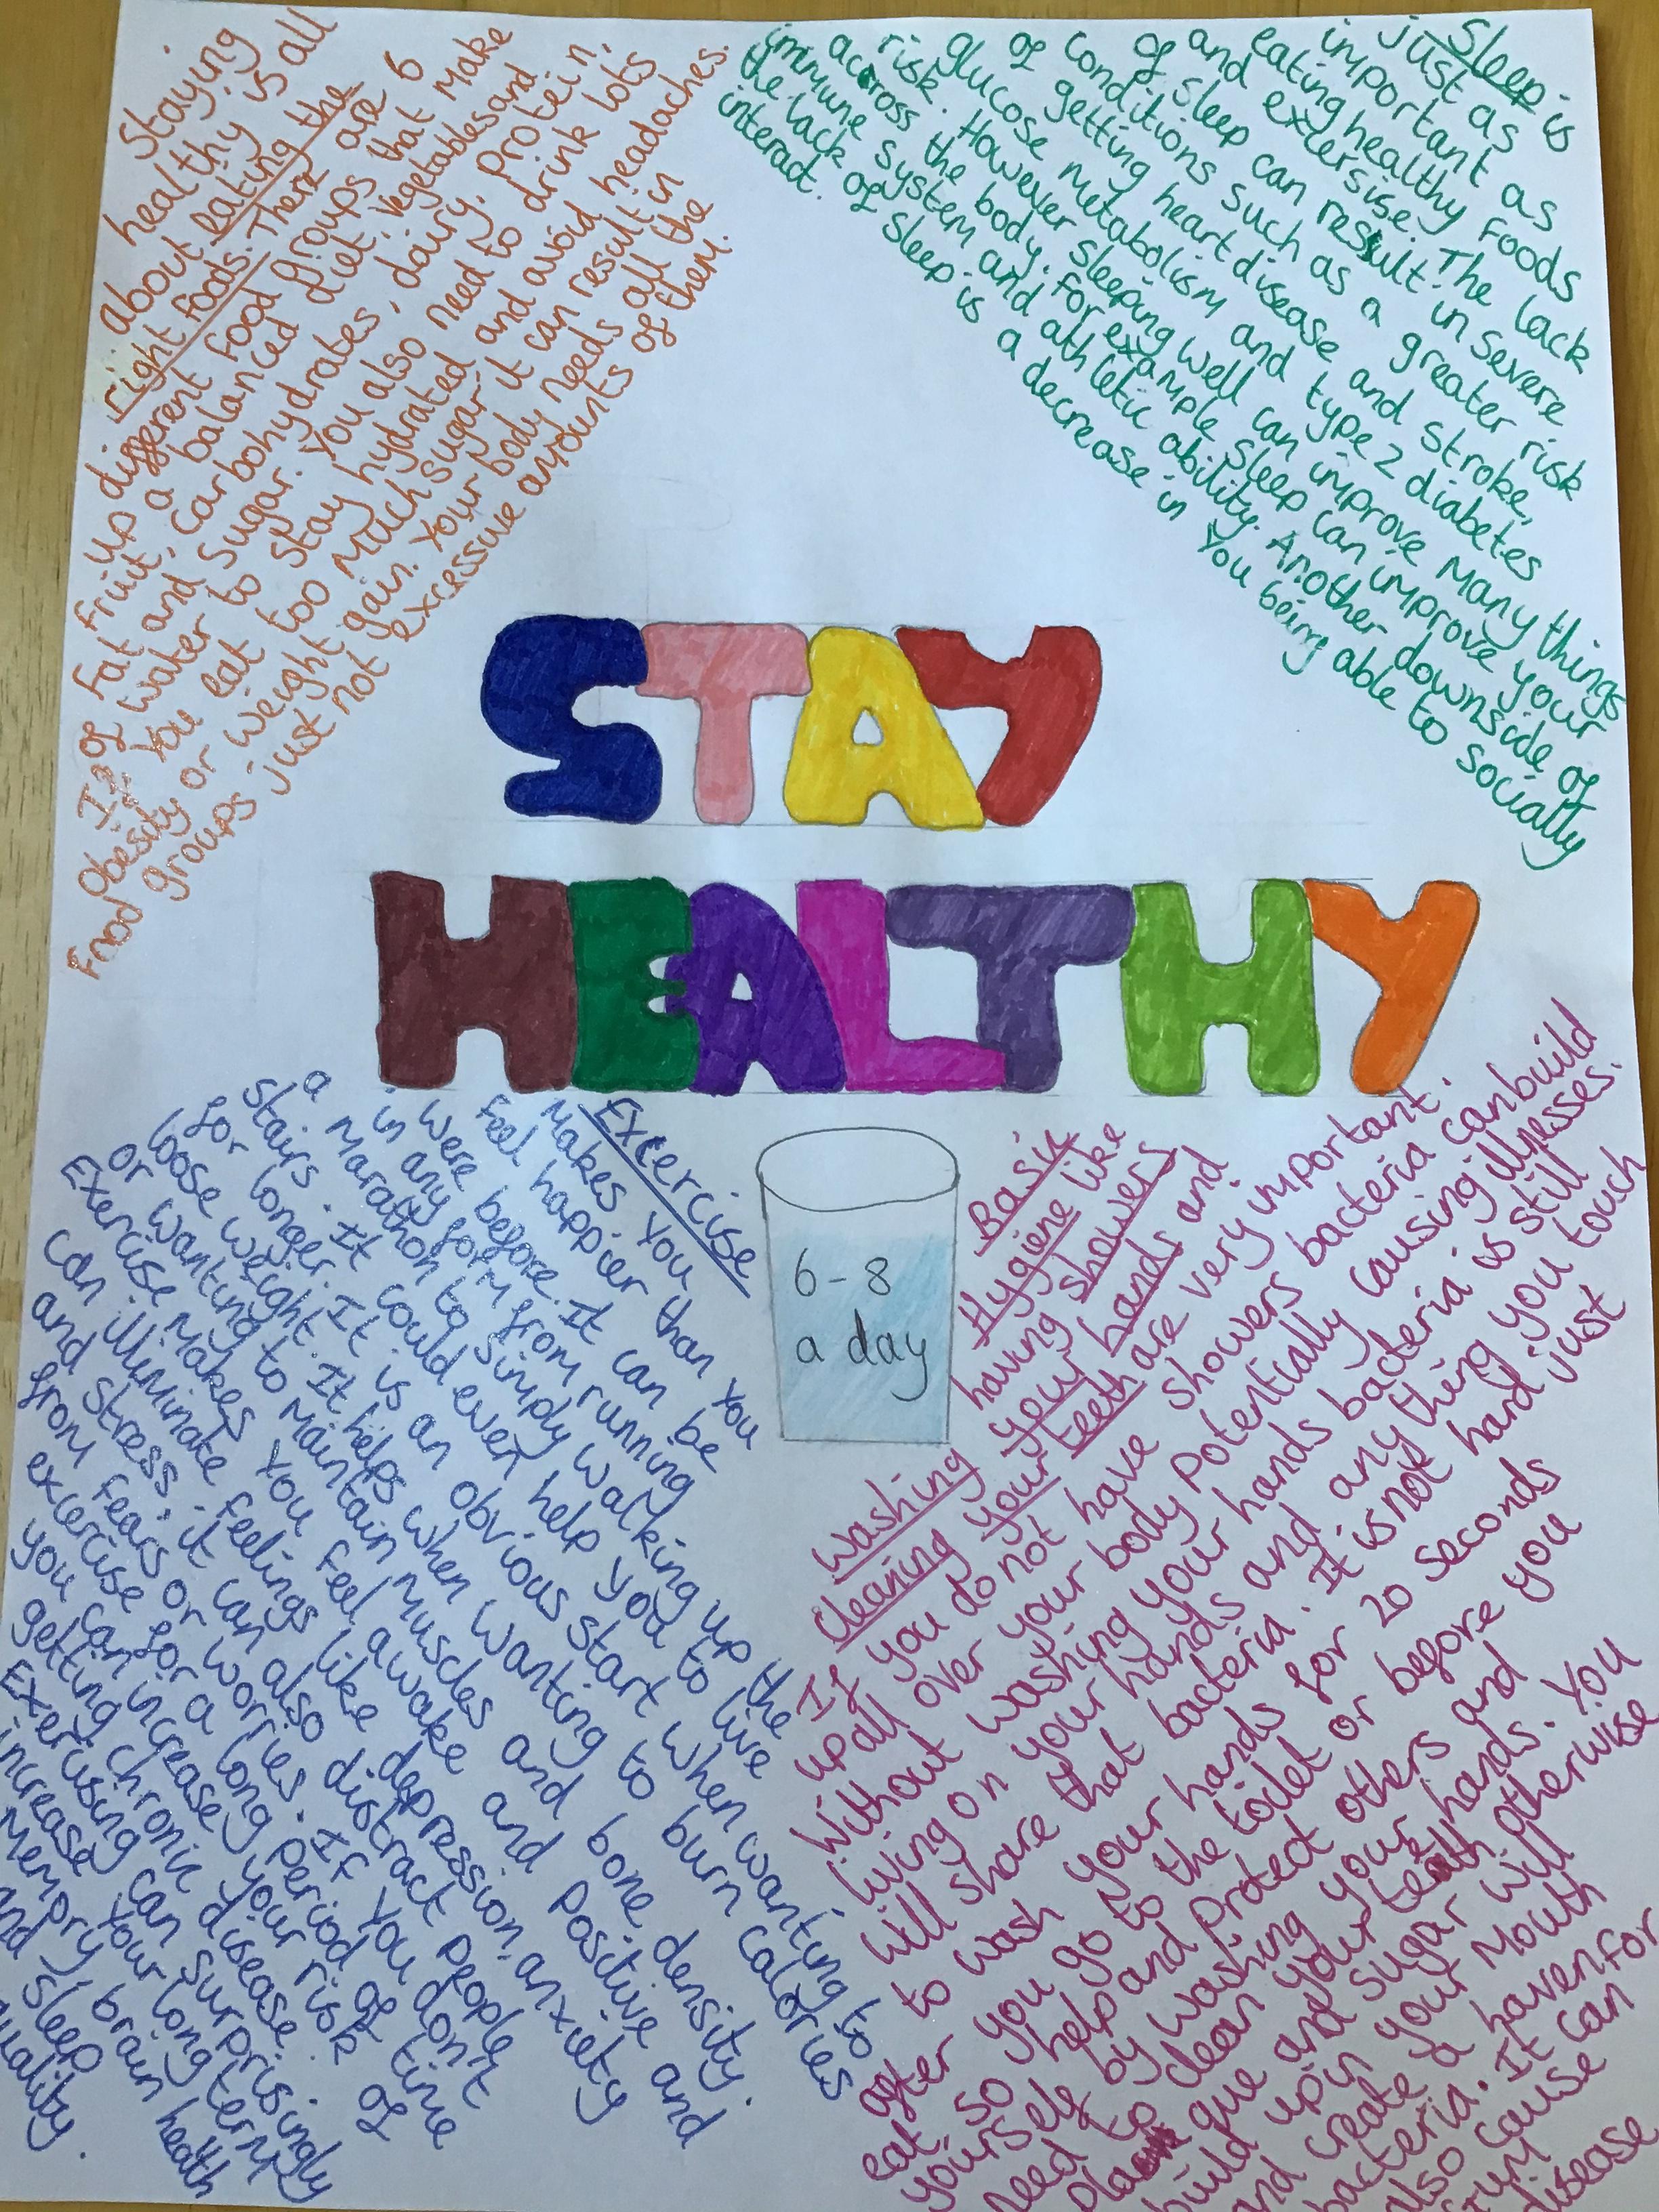 Staying
healthy is all
about eating the
right foods. There are 6
different food groups that make
up a balanced diet, vegetables and
fruit, carbohydrates, dairy, protein,
fat and sugar. You also need to drink lots
of water to stay hydrated and avoid headaches.
If you eat too much sugar it can result in
obesity or weight gain. Your body needs all the
food groups just not excessive amounts of them.
Sleep is
just as
important as
eating healthy foods
and exersise. The lack
of sleep can result in severe
conditions such as a greater risk
of getting heart disease and stroke,
glucose metabolism and type 2 diabetes
risk. However sleeping well can improve many things
across the body. For example sleep can improve your
immune system and athletic ability. Another downside of
the lack of sleep is a decrease in you being able to socially
interact.
STAY
HEALTHY
Exercise
makes you
feel happier than you
were before. It can be
in any form from running
a marathon to simply walking up the
stairs. It could even help you to live
for longer. It is an obvious start when wanting to
loose weight. It helps when wanting to burn calories
or wanting to maintain muscles and bone density.
Exercise makes you feel awake and positive and
can illiminate feelings like depression, anxiety
and stress, it can also distract people
from fears or worries. If you dont
exercise for a long period of time
you can increase your risk of
getting chronic disease.
Exercising can surprisingly
increase your long term
memory, brain health
and sleep
quality.
6-8
a day
Basic
Hygiene like
having showers
washing your hands and
cleaning your teeth are very important.
If you do not have showers bacteria can build
up all over your body potentially causing illnesses.
Without washing your hands bacteria is still
living on your hands and any thing you touch
will share that bacteria. It is not hard just
to wash your hands for 20 seconds
after you go to the toilet or before you
eat, so help and protect others and
yourself by washing your hands. You
need to clean your teeth otherwise
plaque and sugar will
build up in your mouth
and create a haven for
bacteria. It can
also cause
disease